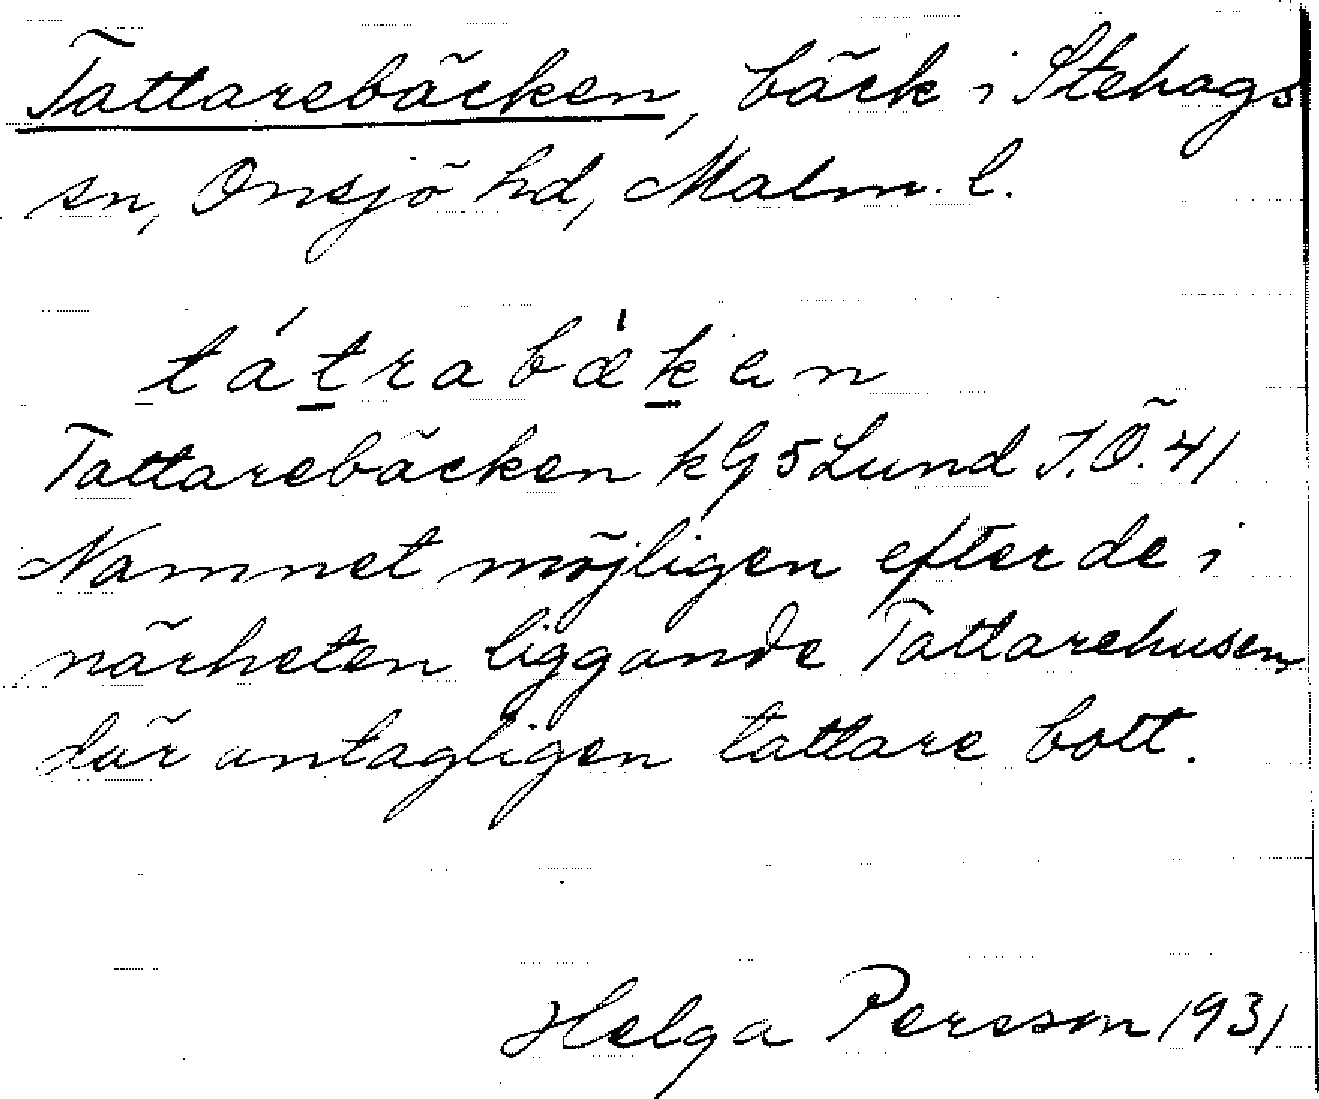 Tattarebäcken, bäck i Stehags
sn, Onsjö hd, Malm. l.
tátrabækan
Tattarebäcken kG5 Lund T.Ö. 41
Namnet möjligen efter de i
närheten liggande Tattarehusen
där antagligen tattare bott.
Helga Persson 1931